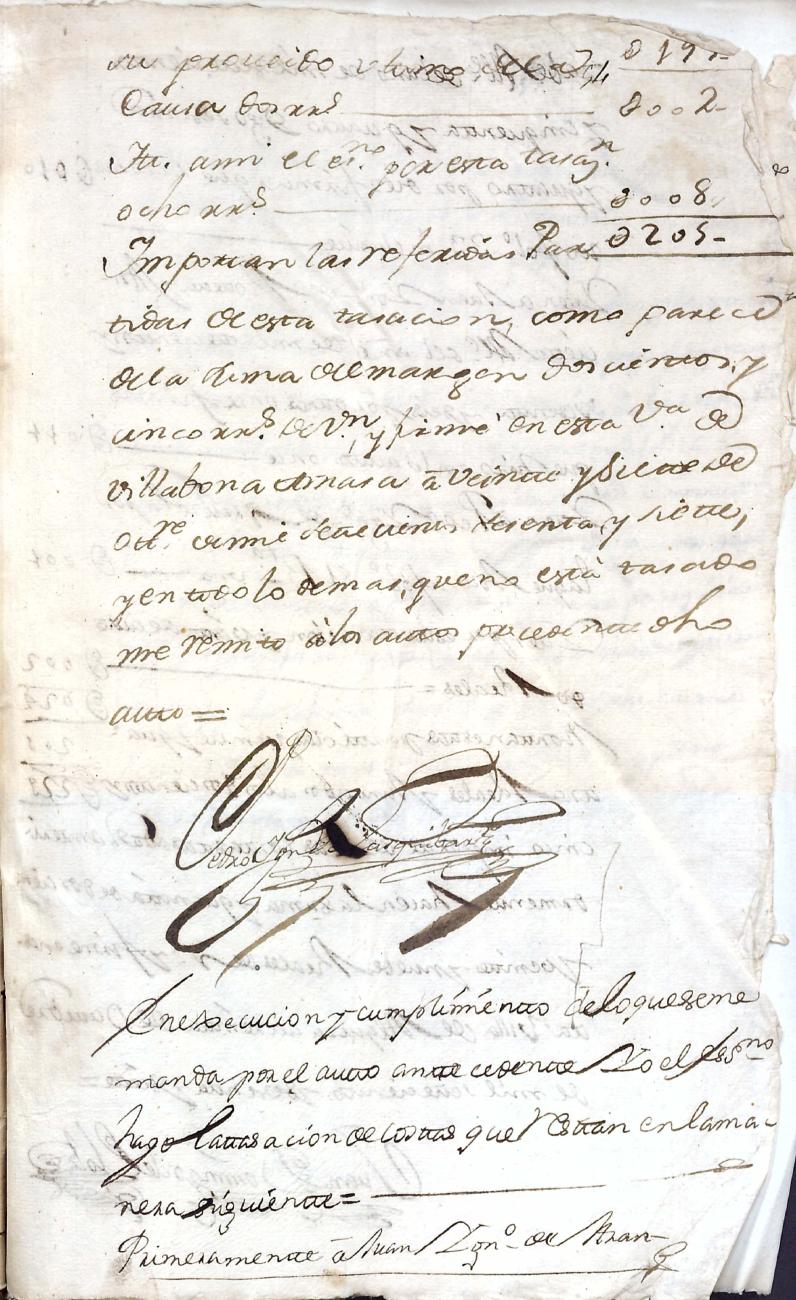 su proueido vltimo de esta 0 195-
Causa dos rr.s 0 0 0 2-
Itt. ami el es.no por esta tasaz.n
ocho rr.s 0 0 0 8
Importan las referidas Par= 0 2 0 5-
tidas de esta tasacion, como parece
de la suma del margen Doscientos, y
cinco rr.s de v.n, y firmé en esta V.a de
Villabona Amasa â Veinte y Siete de
Ott.re de mil setecientos sesenta, y siette,
y en todo lo demas, que no está tasado
me remito â los autos precedente dho
autto =
Pedro Ign.o de
En execucion y cumplimentto de lo que se me
manda por el autto anttecedentte Yo el Ess.no
hago la ttasacion de costtas que resttan en la ma=
nera siguientte=
Primeramentte â Juan Ygn.o de Aran=